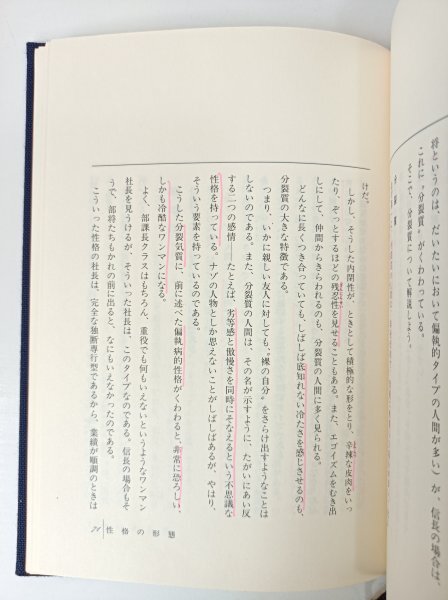 将というのは、だいたいにおいて偏執的タイプの人間が多い）が、信長の場合は、
これに〝分裂質〟がくわわっている。
そこで、分裂質について解説しよう。
けだ。
しかし、そうした内閉性が、ときとして積極的な形をとり、辛辣な皮肉をいっ
たり、ぞっとするほどの残忍性を見せることもある。また、エゴイズムをむき出
しにして、仲間からきらわれるのも、分裂質の人間に多く見られる。
どんなに長くつき合っていても、しばしば底知れない冷たさを感じさせるのも、
分裂質の大きな特徴である。
つまり、いかに親しい友人に対しても〝裸の自分〟をさらけ出すようなことは
しないのである。また、分裂質の人間は、その名が示すように、たがいにあい反
する二つの感情――たとえば、劣等感と傲慢さを同時にそなえるという不思議な
性格を持っている。ナゾの人物としか思えないことがしばしばあるが、やはり、
そういう要素を持っているのである。
こうした分裂気質に、前に述べた偏執病的性格がくわわると、非常に恐ろしい、
しかも冷酷なワンマンになる。
よく、部課長クラスはもちろん、重役でも何もいえないというようなワンマン
社長を見うけるが、そういった社長は、このタイプなのである。信長の場合もそ
うで、部将たちもかれの前に出ると、なにもいえなかったのである。
こういった性格の社長は、完全な独断専行型であるから、業績が順調のときは
21 性格の形態